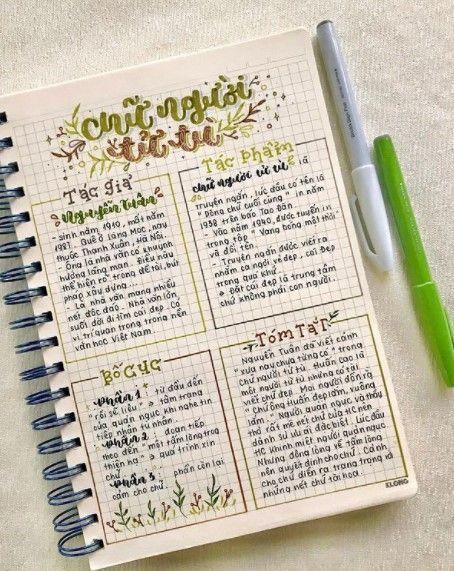 chữ người
tử tù
Tác giả
Nguyễn Tuân
- sinh năm 1910, mất năm
1987. Quê ở làng Mọc, nay
thuộc Thanh Xuân, Hà Nội.
- Ông là nhà văn có khuynh
hướng lãng mạn. Điều này
thể hiện rõ trong đề tài, bút
pháp xây dựng...
- Là nhà văn mang nhiều
nét độc đáo. Nhà văn lớn,
suốt đời đi tìm cái đẹp. Có
vị trí quan trọng trong nền
văn học Việt Nam.
Tác phẩm
chữ người tử tù là
truyện ngắn, lúc đầu có tên là
" Dòng chữ cuối cùng " in năm
1938 trên báo Tao Đàn
- Vào năm 1940, được tuyển in
trong tập " Vang bóng một thời
và đổi tên
- Truyện ngắn được viết ra
nhằm ca ngợi vẻ đẹp, cái đẹp
trong quá khứ.
→ Đặt cái đẹp là trung tâm
chứ không phải con người.
Bố cục
phần 1 : từ đầu đến
" rồi sẽ liệu " → tâm trạng
của quản ngục khi nghe tin
tiếp nhận tử nhân
phần 2 : đoạn tiếp
theo đến " một tấm lòng trong
thiên hạ " → quá trình xin
chữ
phần 3 : phần còn lại
cảm cho chữ.
Tóm tắt
Nguyễn Tuân đã viết cảnh
" xưa nay chưa từng có " trong
chữ người tử tù. Huấn cao là
một tử tù nhưng có tài
viết chữ đẹp. Mọi người đồn rằng
" Chữ ông Huấn đẹp lắm, vuông
lắm ". Người quản ngục và thầy
thơ rất mê nét chữ của HC nên
dành sự ưu ái đặc biệt. Lúc đầu
HC khinh miệt người quản ngục.
Nhưng động lòng về tấm lòng
nên quyết định cho chữ. Cảnh
cho chữ diễn ra trang trọng và
những nét chữ tài hoa.
KLONG